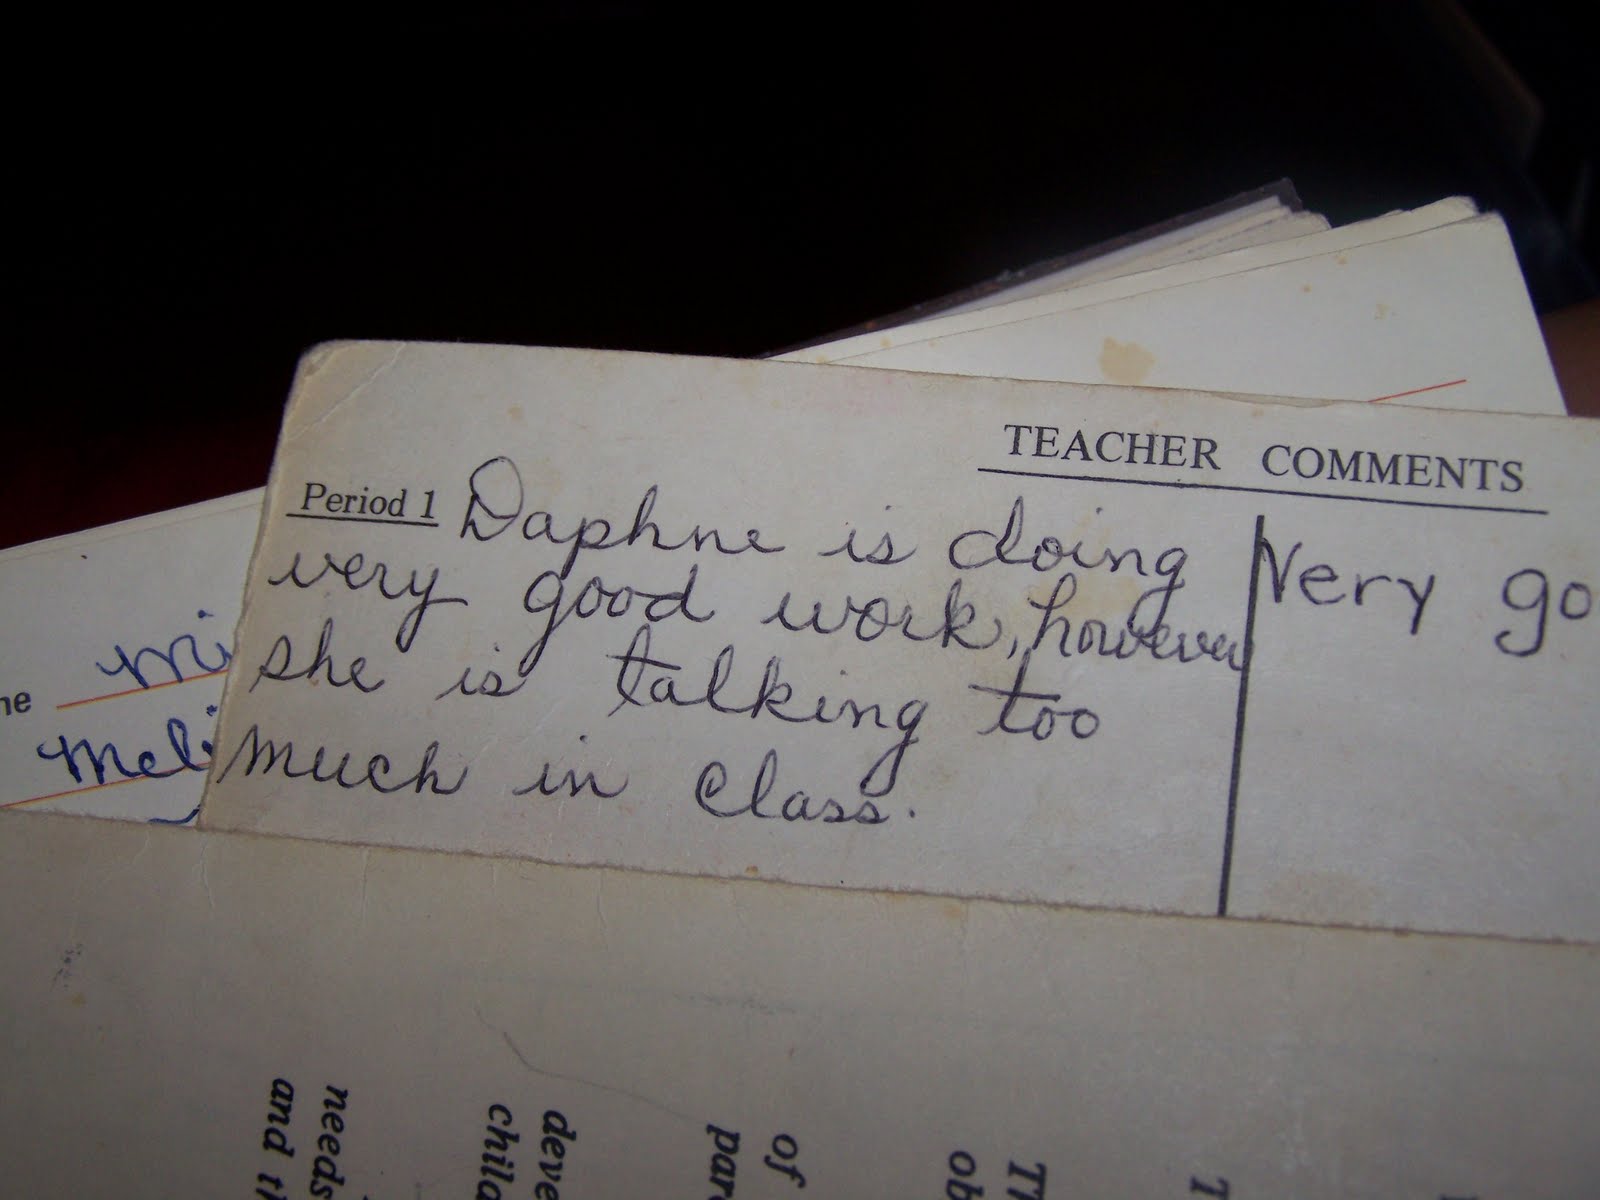 TEACHER COMMENTS
Period 1 Daphne is doing
very good work, however
she is talking too
much in class.
Very go
ne Mi
Meli
needs
and th
deve
of
par
Th
ob
T